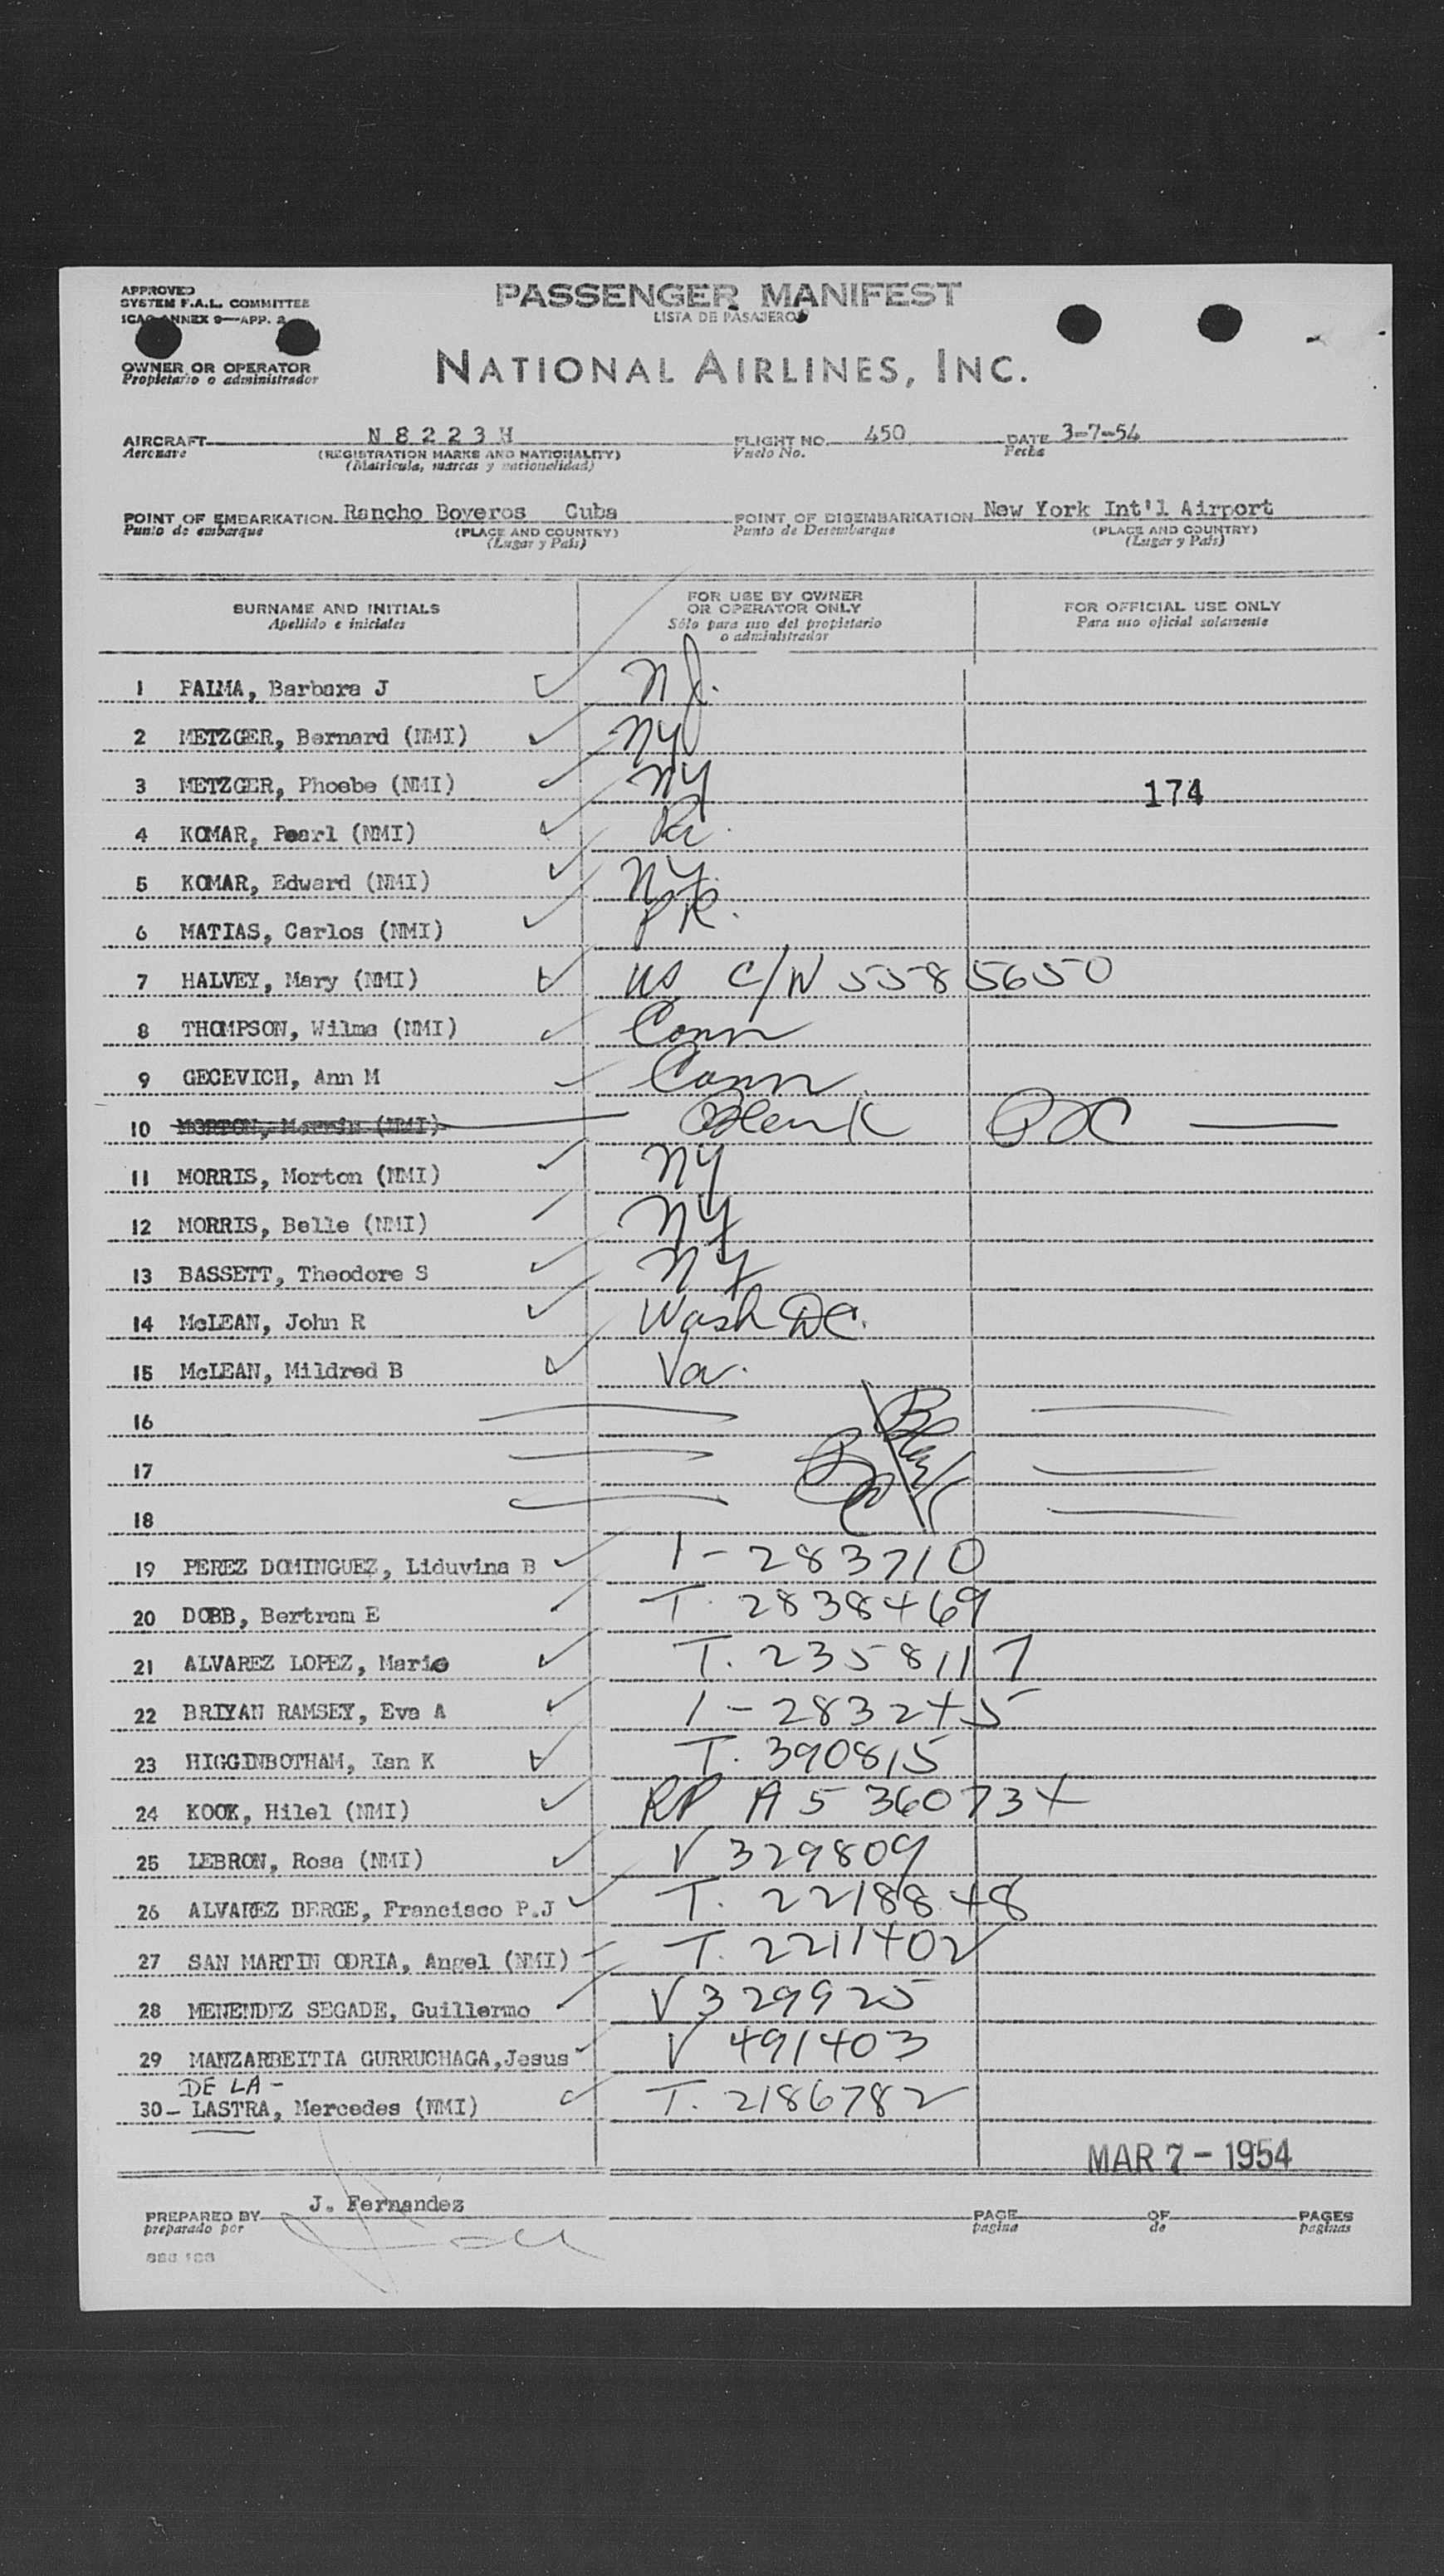 APPROVED
SYSTEM F.A.L. COMMITTEE
ICAO ANNEX 9—APP. 2
PASSENGER MANIFEST
LISTA DE PASAJEROS
OWNER OR OPERATOR
Propietario o administrador
NATIONAL AIRLINES, INC.
AIRCRAFT N 8 2 2 3 H FLIGHT NO. 450 DATE 3-7-54
Aeronave (REGISTRATION MARKS AND NATIONALITY) Vuelo No. Fecha
(Matricula, marcas y nacionalidad)
POINT OF EMBARKATION Rancho Boyeros Cuba POINT OF DISEMBARKATION New York Int'l Airport
Punto de embarque (PLACE AND COUNTRY) Punto de Desembarque (PLACE AND COUNTRY)
(Lugar y País) (Lugar y País)
SURNAME AND INITIALS
Apellido e iniciales
FOR USE BY OWNER
OR OPERATOR ONLY
Sólo para uso del propietario
o administrador
FOR OFFICIAL USE ONLY
Para uso oficial solamente
1 PALMA, Barbara J NJ.
2 METZGER, Bernard (NMI) NY
3 METZGER, Phoebe (NMI) NY 174
4 KOMAR, Pearl (NMI)
5 KOMAR, Edward (NMI) NY.
6 MATIAS, Carlos (NMI) PR.
7 HALVEY, Mary (NMI) US C/N 5585650
8 THOMPSON, Wilma (NMI) Conn
9 GECEVICH, Ann M Conn
10 MORTON, Morris (NMI) Blank
11 MORRIS, Morton (NMI) NY
12 MORRIS, Belle (NMI) NY
13 BASSETT, Theodore S NY
14 McLEAN, John R Wash DC.
15 McLEAN, Mildred B Va.
16 Blank
17
18
19 PEREZ DOMINGUEZ, Liduvina B 1-283710
20 DOBB, Bertram E T. 2838469
21 ALVAREZ LOPEZ, Mario T. 2358117
22 BRIYAN RAMSEY, Eva A 1-283245
23 HIGGINBOTHAM, Ian K T. 390815
24 KOOK, Hilel (NMI) RP A5 360734
25 LEBRON, Rosa (NMI) V 329809
26 ALVAREZ BERGE, Francisco P.J T. 2218848
27 SAN MARTIN ODRIA, Angel (NMI) T. 2211402
28 MENENDEZ SEGADE, Guillermo V 329925
29 MANZARBEITIA GURRUCHAGA, Jesus V 491403
DE LA -
30- LASTRA, Mercedes (NMI) T. 2186782
MAR 7 - 1954
PREPARED BY J. Fernandez PAGE OF PAGES
preparado por pagina de paginas